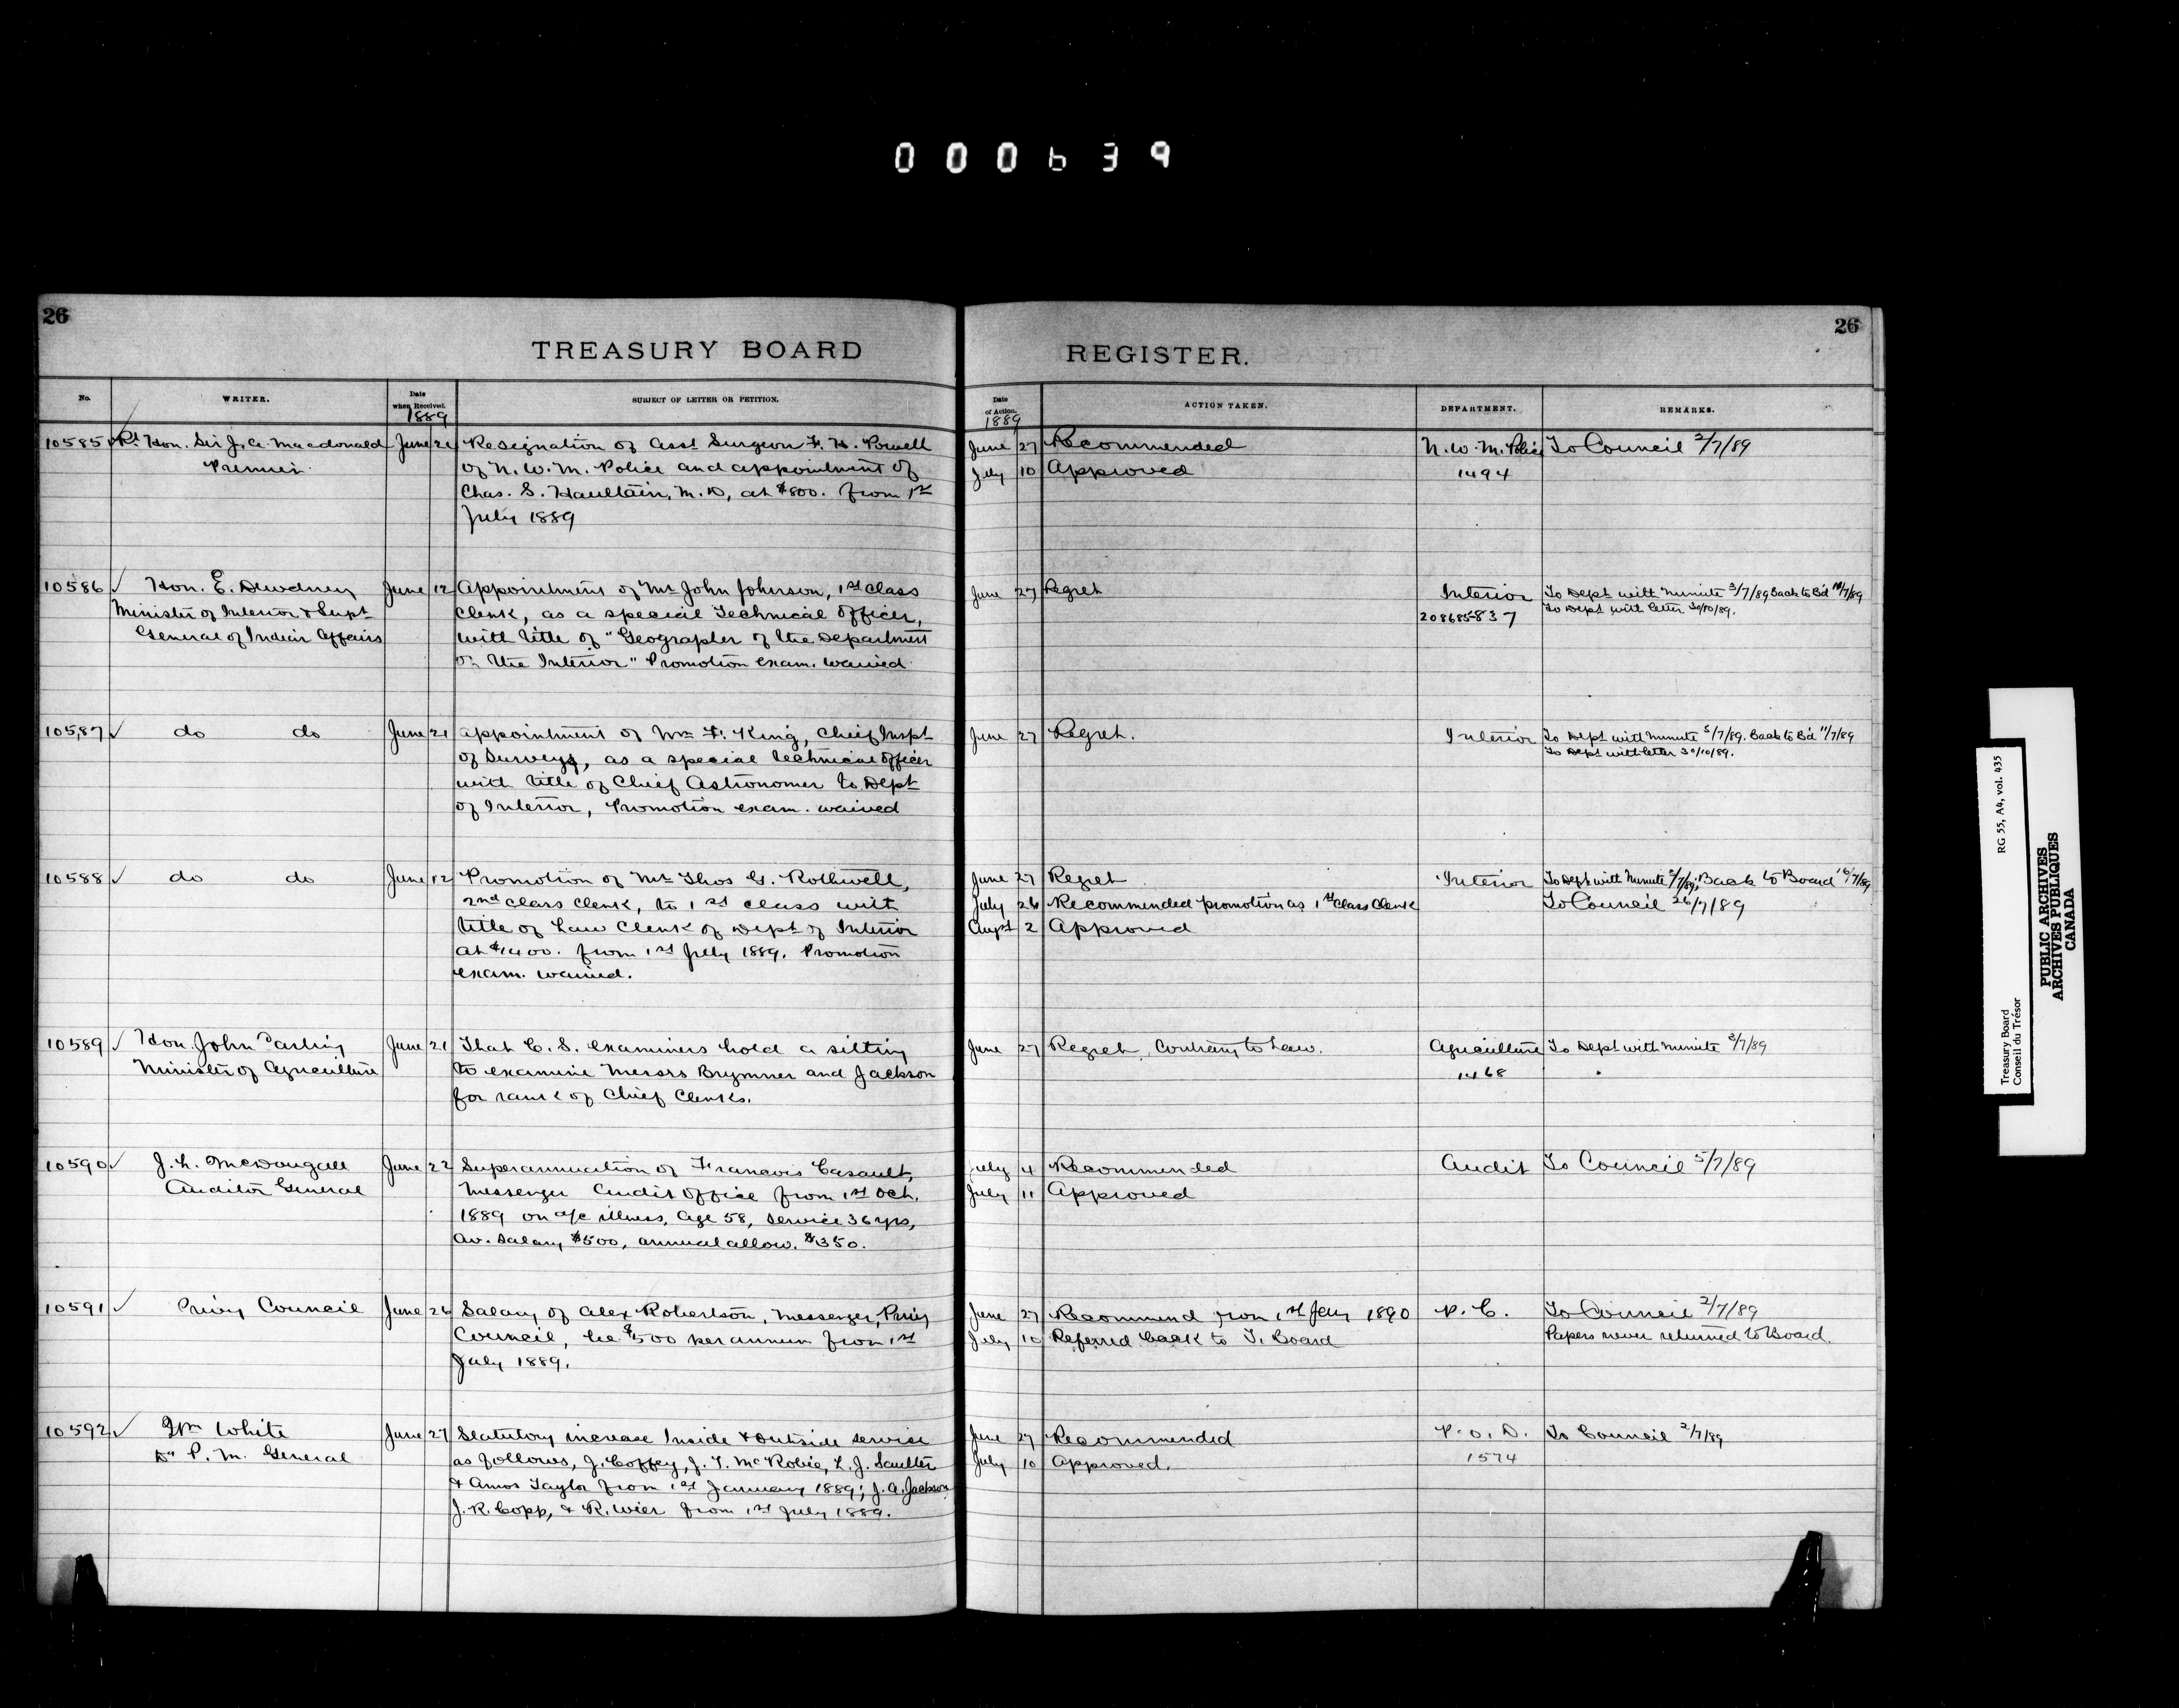 000639
26
TREASURY BOARD
REGISTER.
26
No.
WRITER.
Date when Received.
1889
SUBJECT OF LETTER OR PETITION.
Date of Action.
1889
ACTION TAKEN.
DEPARTMENT.
REMARKS.
10585 Rt Hon. Sir J. A. Macdonald June 21 Resignation of Asst Surgeon F. H. Powell June 27 Recommended N. W. M. Police To Council 2/7/89
Premier of N. W. M. Police and appointment of July 10 Approved 1494
Chas. S. Haultain, M.D, at $800. from 1st
July 1889
10586 Hon. E. Dewdney June 12 Appointment of Mr John Johnson, 1st Class June 27 Regret Interior To Dept with Minute 3/7/89 Back to Bd 10/7/89
Minister of Interior & Supt Clerk, as a special Technical Officer, 208685-837 To Dept with letter 30/10/89.
General of Indian Affairs with title of "Geographer of the Department
of the Interior" Promotion exam. waived
10587 do do June 21 appointment of Wm F. King, Chief Inspt June 27 Regret. Interior To Dept with Minute 5/7/89. Back to Bd 11/7/89
of Surveys, as a special technical officer To Dept with letter 30/10/89.
with title of Chief Astronomer to Dept
of Interior, Promotion exam. waived
10588 do do June 12 Promotion of Mr Thos G. Rothwell, June 27 Regret Interior To Dept with Minute 5/7/89; Back to Board 16/7/89
2nd class Clerk, to 1st class with July 26 Recommended promotion as 1st Class Clerk To Council 26/7/89
title of Law Clerk of Dept of Interior Augst 2 Approved
at $1400. from 1st July 1889. Promotion
exam. waived.
10589 Hon. John Carling June 21 That C. S. examiners hold a sitting June 27 Regret, Contrary to Law. Agriculture To Dept with Minute 3/7/89
Minister of Agriculture to examine Messrs Brymner and Jackson 1468
for rank of Chief Clerks.
10590 J. L. McDougall June 22 Superannuation of Francois Casault, July 4 Recommended Audit To Council 5/7/89
Auditor General Messenger Audit Office from 1st Oct. July 11 Approved
1889 on a/c illness, Age 58, service 36 yrs,
Av. Salary $500, annual allow. $350.
10591 Privy Council June 26 Salary of Alex Robertson, Messenger, Privy June 27 Recommend from 1st Jany 1890 P. C. To Council 2/7/89
Council, be $500 per annum from 1st July 10 Referred back to T. Board Papers never returned to Board.
July 1889.
10592 Wm White June 27 Statutory increase Inside & Outside service June 27 Recommended P. O. D. To Council 2/7/89
Dy P. M. General as follows, J. Coffey, J. T. McRobie, L. J. Saulter July 10 Approved. 1574
& Amos Taylor from 1st January 1889; J. A. Jackson
J. R. Copp, & R. Wier from 1st July 1889.
Treasury Board
Conseil du Trésor
RG 55, A4, vol. 435
PUBLIC ARCHIVES
ARCHIVES PUBLIQUES
CANADA